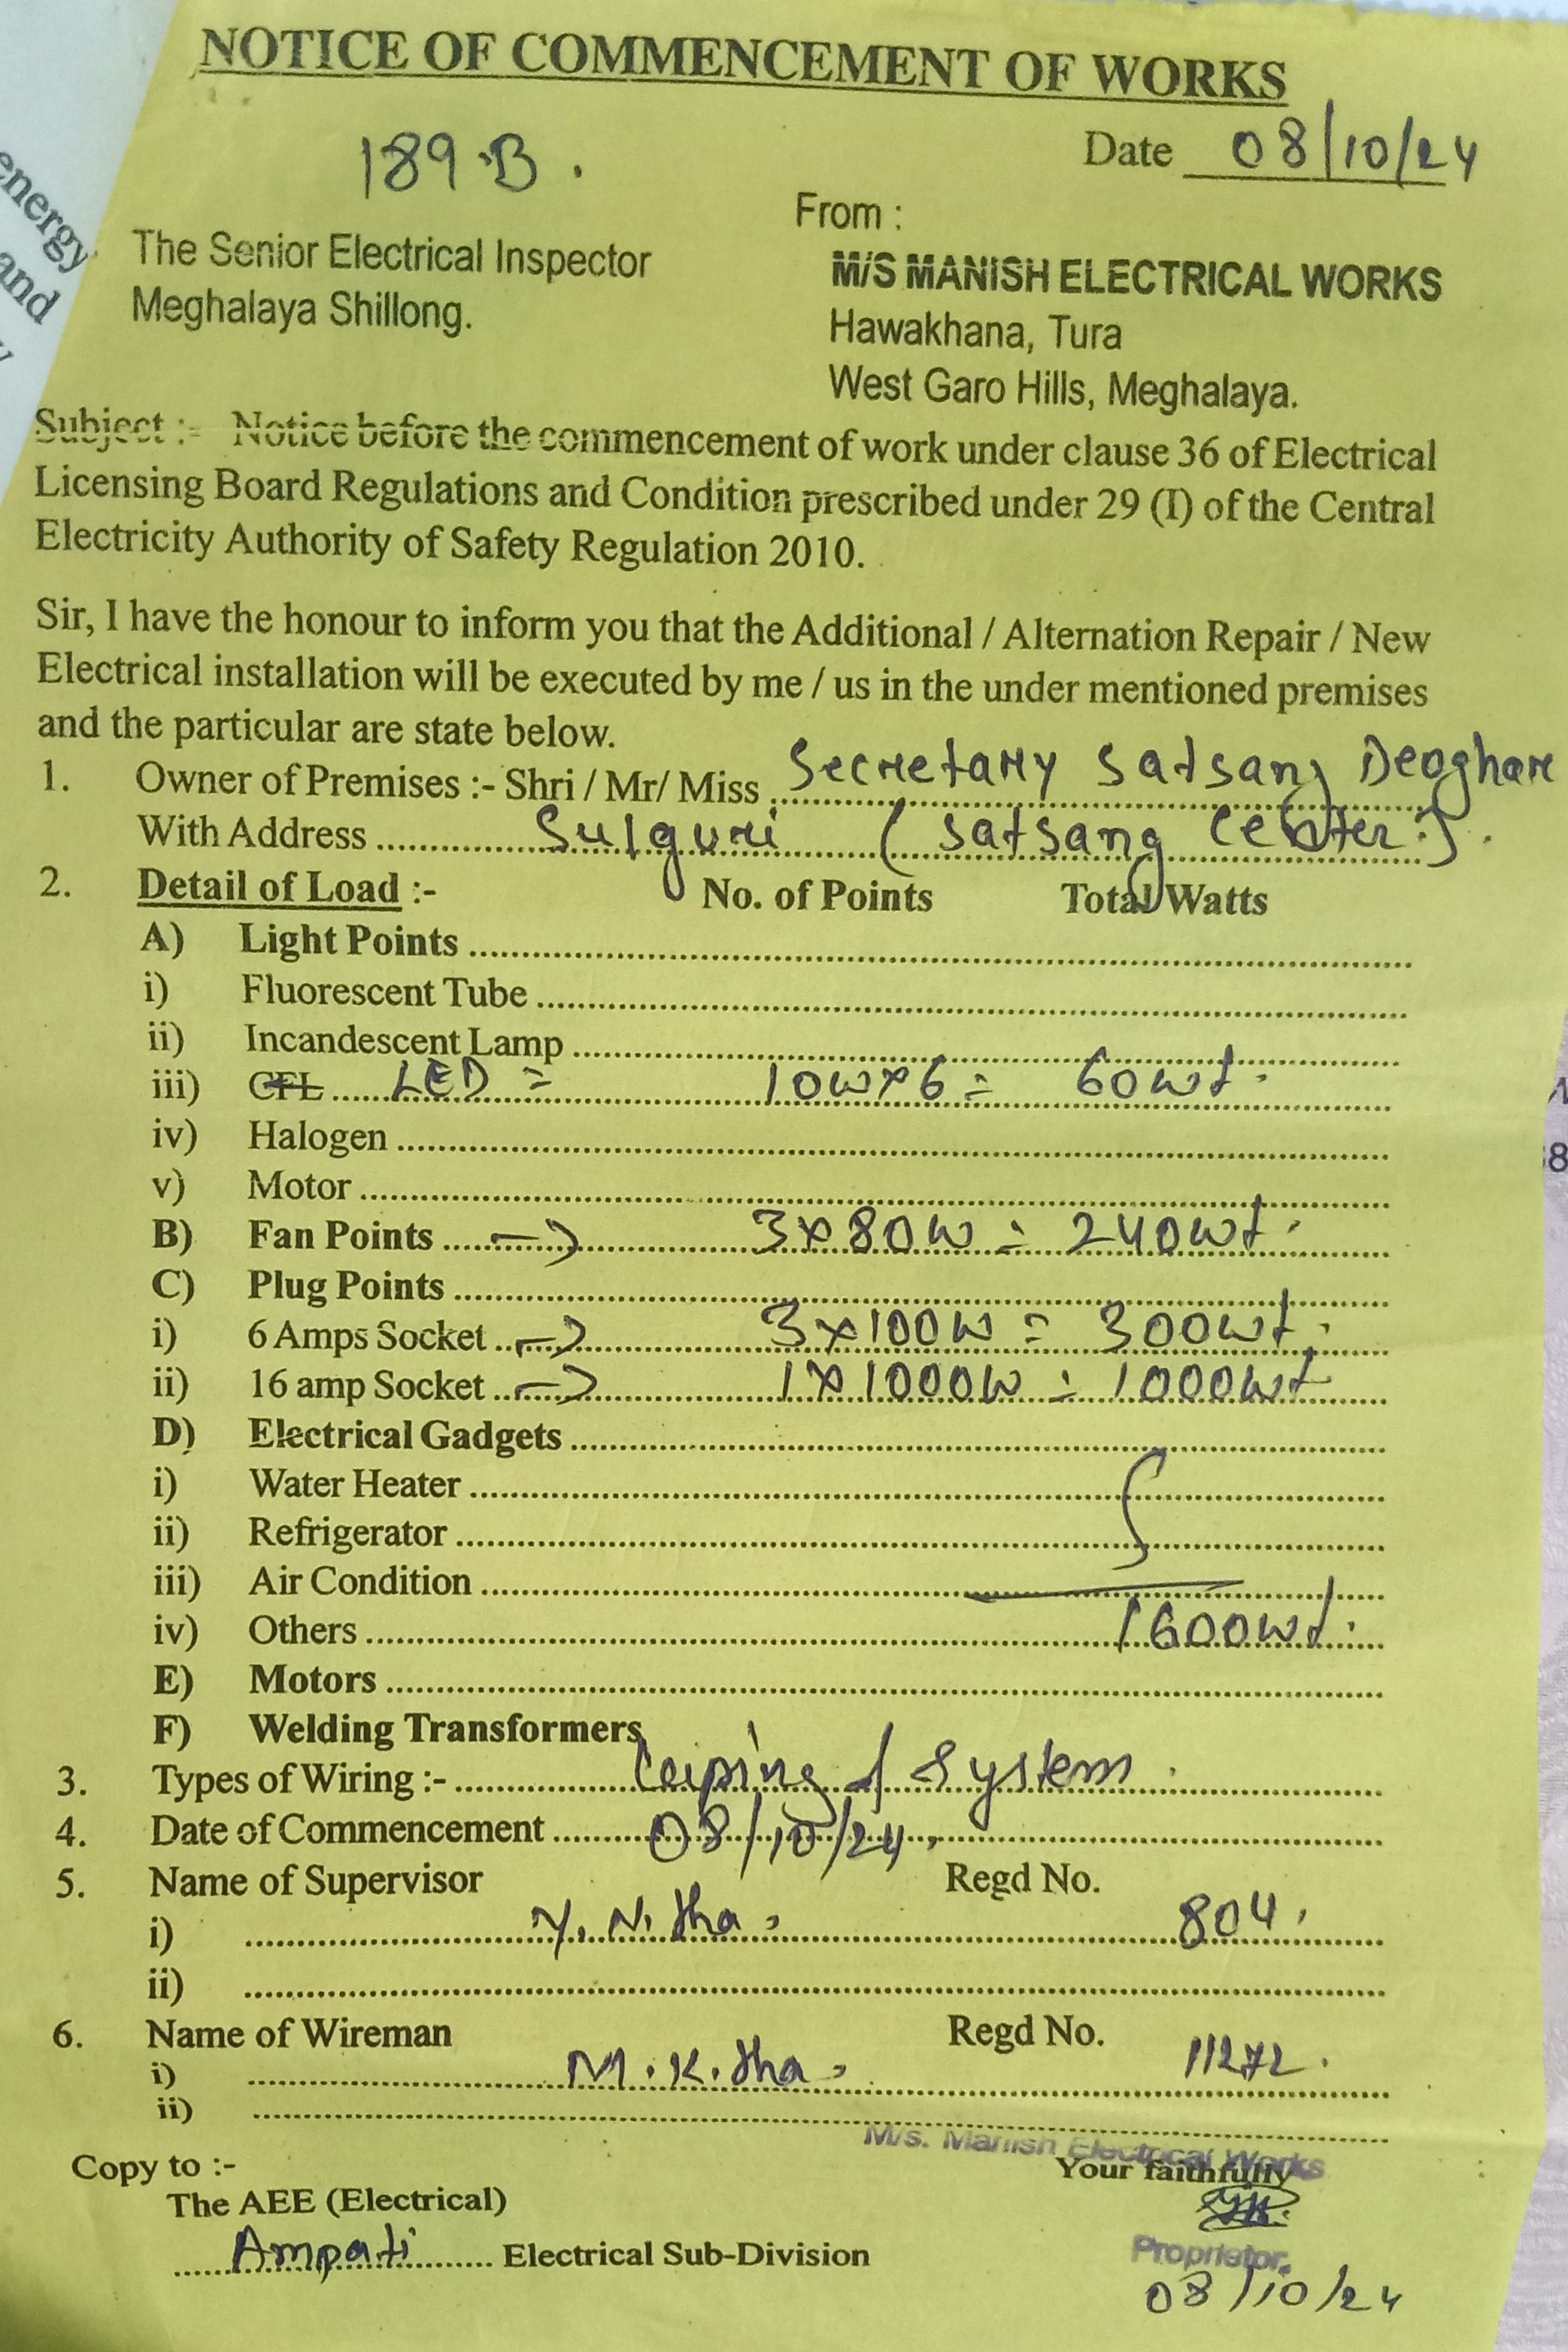 NOTICE OF COMMENCEMENT OF WORKS
189 B.
Date 08/10/24
energy
and
The Senior Electrical Inspector
Meghalaya Shillong.
From :
M/S MANISH ELECTRICAL WORKS
Hawakhana, Tura
West Garo Hills, Meghalaya.
Subject :- Notice before the commencement of work under clause 36 of Electrical
Licensing Board Regulations and Condition prescribed under 29 (I) of the Central
Electricity Authority of Safety Regulation 2010.
Sir, I have the honour to inform you that the Additional / Alternation Repair / New
Electrical installation will be executed by me / us in the under mentioned premises
and the particular are state below.
1. Owner of Premises :- Shri / Mr/ Miss Secretary Satsang Deoghar
With Address Sulguri (Satsang Center).
2. Detail of Load :- No. of Points Total Watts
A) Light Points
i) Fluorescent Tube
ii) Incandescent Lamp
iii) CFL LED = 10W×6 = 60wt.
iv) Halogen
v) Motor
B) Fan Points → 3×80W = 240wt.
C) Plug Points
i) 6 Amps Socket → 3×100W = 300wt.
ii) 16 amp Socket → 1×1000W = 1000wt
D) Electrical Gadgets
i) Water Heater
ii) Refrigerator
iii) Air Condition
iv) Others 1600wt.
E) Motors
F) Welding Transformers
3. Types of Wiring :- System.
4. Date of Commencement 08/10/24
5. Name of Supervisor Regd No.
i) Y. N. Jha 804
ii)
6. Name of Wireman Regd No.
i) M. K. Jha 11272.
ii)
M/s. Manish Electrical Works
Copy to :- Your faithfully
The AEE (Electrical)
Ampati Electrical Sub-Division
Proprietor.
08/10/24